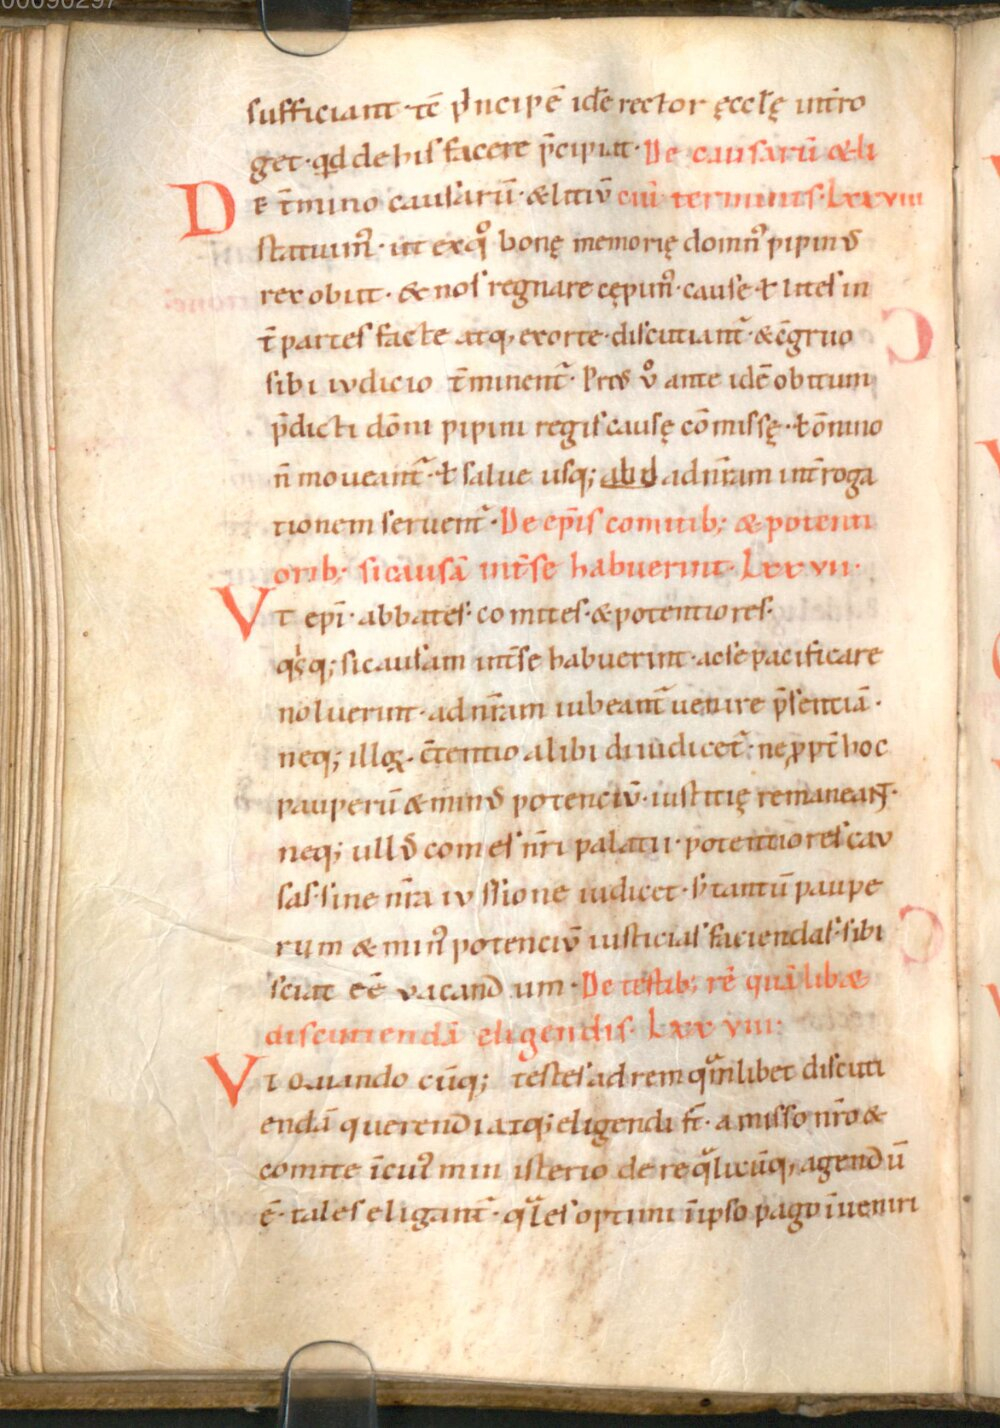 00096297
sufficiant· tc̄ p̍ncipē idē rector ęccłę int̄ro
get· qd̄ de his facere p̄cipiat· De causarū &li
DE t̄mino causarū· &litiū ciū terminis· Lxxvi
statuim᷒· ut exqͦ bonę memorię domn᷒ pipin᷒
rex obiit· & nos regnare cępim᷒· cause· ł lites in
t̄ partes facte atq; exorte· discutiant᷑· & c̄gruo
sibi iudicio t̄minent᷑· Pri᷒ vͦ ante idē obitum
p̄dicti dōni pipini regis causę cōmissę· ł ōnino
n̄ moveant᷑· ł salue usq; abd adnr̄am int̄roga
tionem seruent᷑· De ep̄is comitib; & potenti
orib; si causā int̄se habuerint· Lxxvii·
VT epī· abbates· comites· & potentiores·
q̍sq; si causam int̄se habuerint· ac se pacificare
noluerint· ad nr̄am iubeant᷑ uenire p̄sentiā·
neq; illoꝝ· c̄tentio alibi diiudicet᷑· ne ꝓpt̄ hoc
pauperū & min᷒ potenciū· iustitię remaneant·
neq; ull᷒ comes nr̄i palatii· potentiores cau
sas· sine nr̄a iussione iudicet· s; tantū paupe
rum & min᷒ potenciū iusticias faciendas· sibi
sciat eē vacandum· De testib; rē quālibæ
discutiendā eligendis· Lxxviii:
VT quando cūq; testes ad rem quālibet discuti
endā querendi atq; eligendi st̄· a misso nr̄o &
comite īcui᷒ ministerio de re qͣlicūq; agendū
ē· tales eligant᷑· qͣles optimi īipso pago īueniri